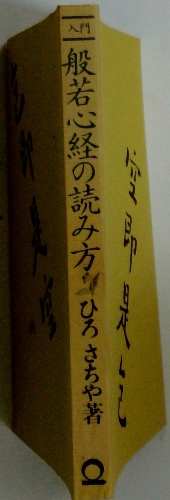 入門
般若心経の読み方
ひろさちや著
空即是色
色即是空